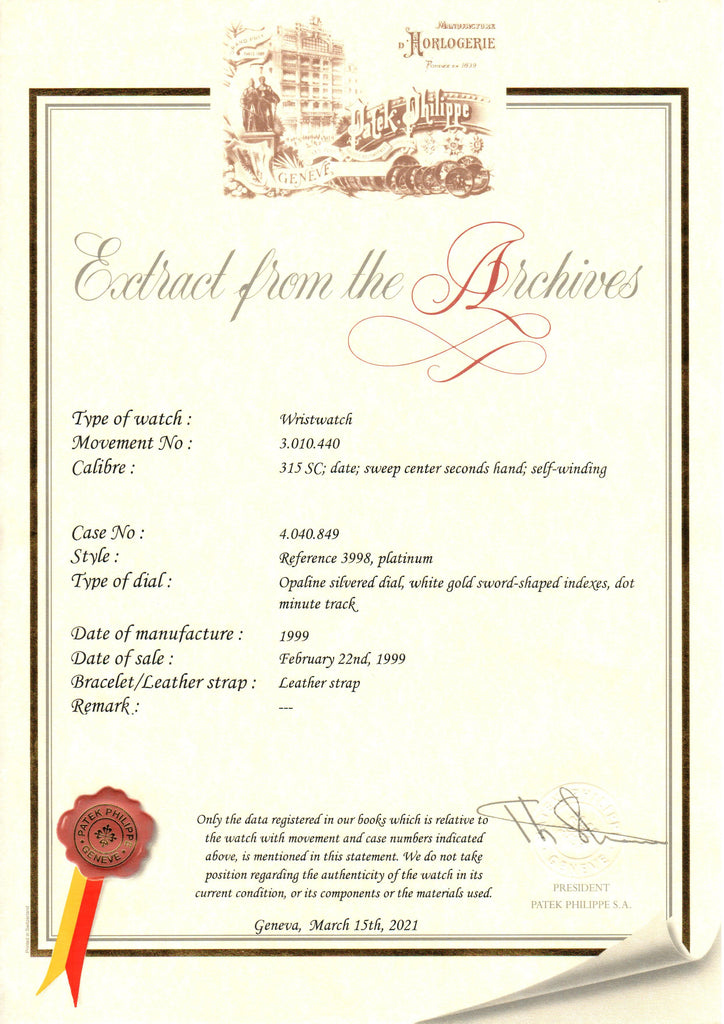 MANUFACTURE
D'HORLOGERIE
FONDÉE EN 1839
Patek Philippe
GENÈVE
Extract from the Archives
Type of watch : Wristwatch
Movement No : 3.010.440
Calibre : 315 SC; date; sweep center seconds hand; self-winding
Case No : 4.040.849
Style : Reference 3998, platinum
Type of dial : Opaline silvered dial, white gold sword-shaped indexes, dot
minute track
Date of manufacture : 1999
Date of sale : February 22nd, 1999
Bracelet/Leather strap : Leather strap
Remark : ---
PATEK PHILIPPE
GENEVE
Only the data registered in our books which is relative to
the watch with movement and case numbers indicated
above, is mentioned in this statement. We do not take
position regarding the authenticity of the watch in its
current condition, or its components or the materials used.
GENEVE
PRESIDENT
PATEK PHILIPPE S.A.
Geneva, March 15th, 2021
Printed in Switzerland